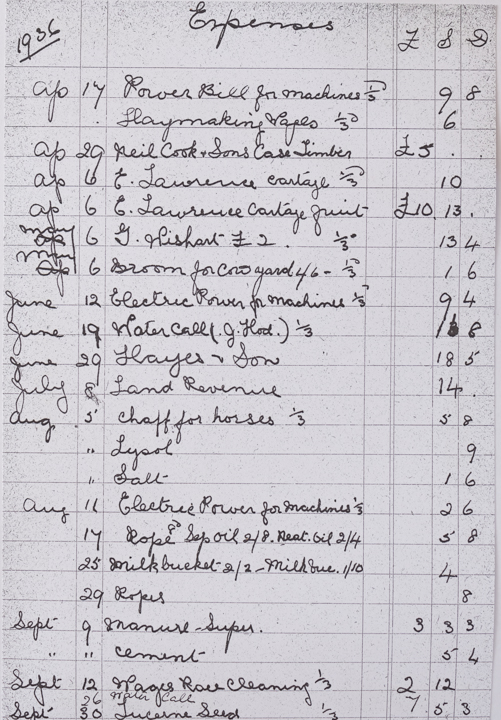 1936 Expenses £ S D
Ap 17 Power Bill for machines 1/3 9 8
. Haymaking Wages 1/3 6
Ap 29 Neil Cook & Sons Case Timber £5 . .
Ap 6 E. Lawrence Cartage 1/3 10
Ap 6 E. Lawrence Cartage fruit £10 13 .
May 6 G. Wishart £2. 1/3 13 4
May 6 Broom for Cow yard 4/6 - 1/3 1 6
June 12 Electric Power for machines 1/3 9 4
June 19 Water Call (J. Hod.) 1/3 8
June 29 Hayes & Son 18 5
July 8 Land Revenue 14 .
Aug 5 chaff for horses 1/3 5 8
" Lysol 9
" Salt 1 6
Aug 11 Electric Power for Machines 1/3 2 6
17 Rope 8D Sep oil 2/8. Neat. Oil 2/4 5 8
25 Milk bucket - 2/2 - Milk buc. 1/10 4
29 Ropes 8
Sept 9 Manure - Super. 3 3 3
" " cement 5 4
Sept 12 Wages Race Cleaning 1/3 2 12
26 Water Call 7
Sept 30 Lucerne Seed 1/3 5 3